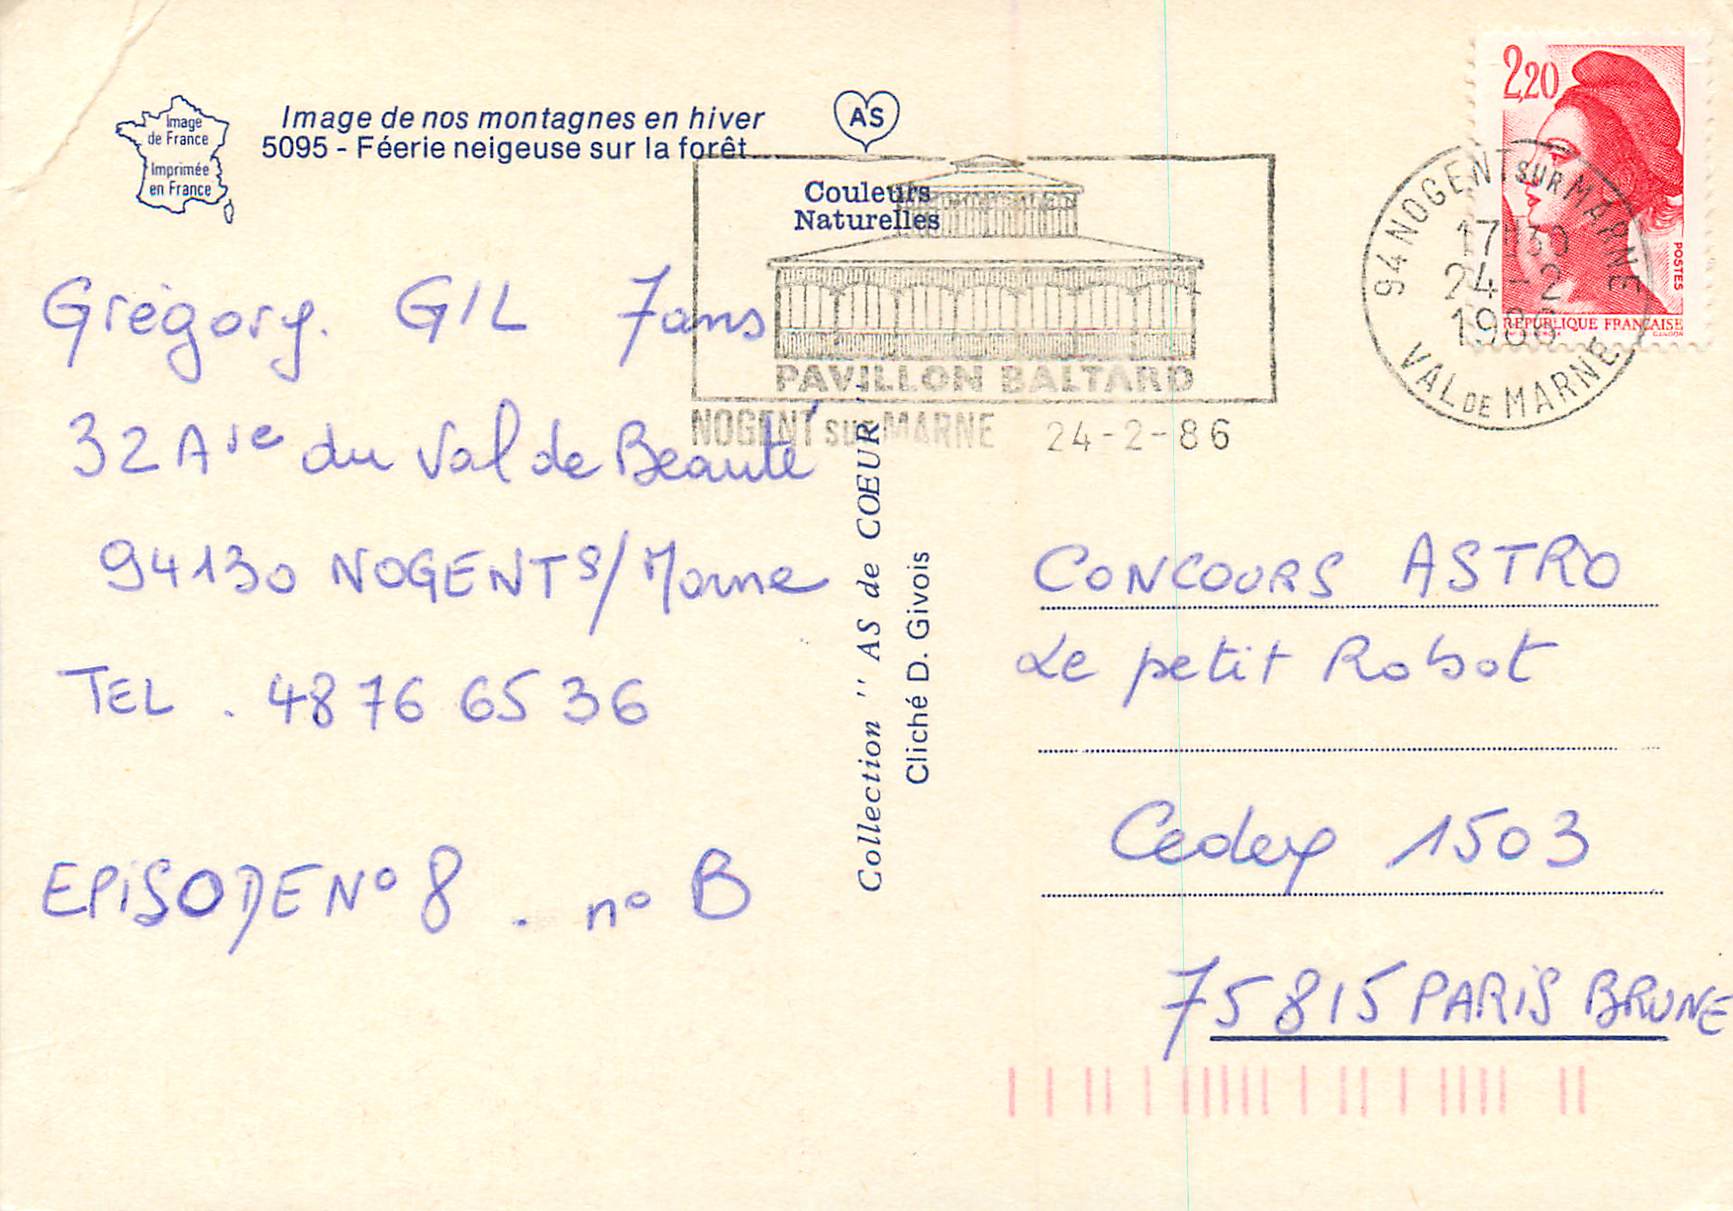 Image
de France
Imprimée
en France
Image de nos montagnes en hiver
5095 - Féerie neigeuse sur la forêt
AS
Couleurs
Naturelles
PAVILLON BALTARD
NOGENT SUR MARNE 24-2-86
94 NOGENT SUR MARNE
17H30
24-2
1986
VAL DE MARNE
2,20
POSTES
REPUBLIQUE FRANÇAISE
Grégory. GIL 7ans
32 Ave du Val de Beauté
94130 NOGENT S/Marne
TEL . 48 76 65 36
EPiSODE N° 8 . n° B
Collection "AS de CŒUR"
Cliché D. Givois
CONCOURS ASTRO
Le petit Robot
Cedex 1503
75815 PARiS BRUNE